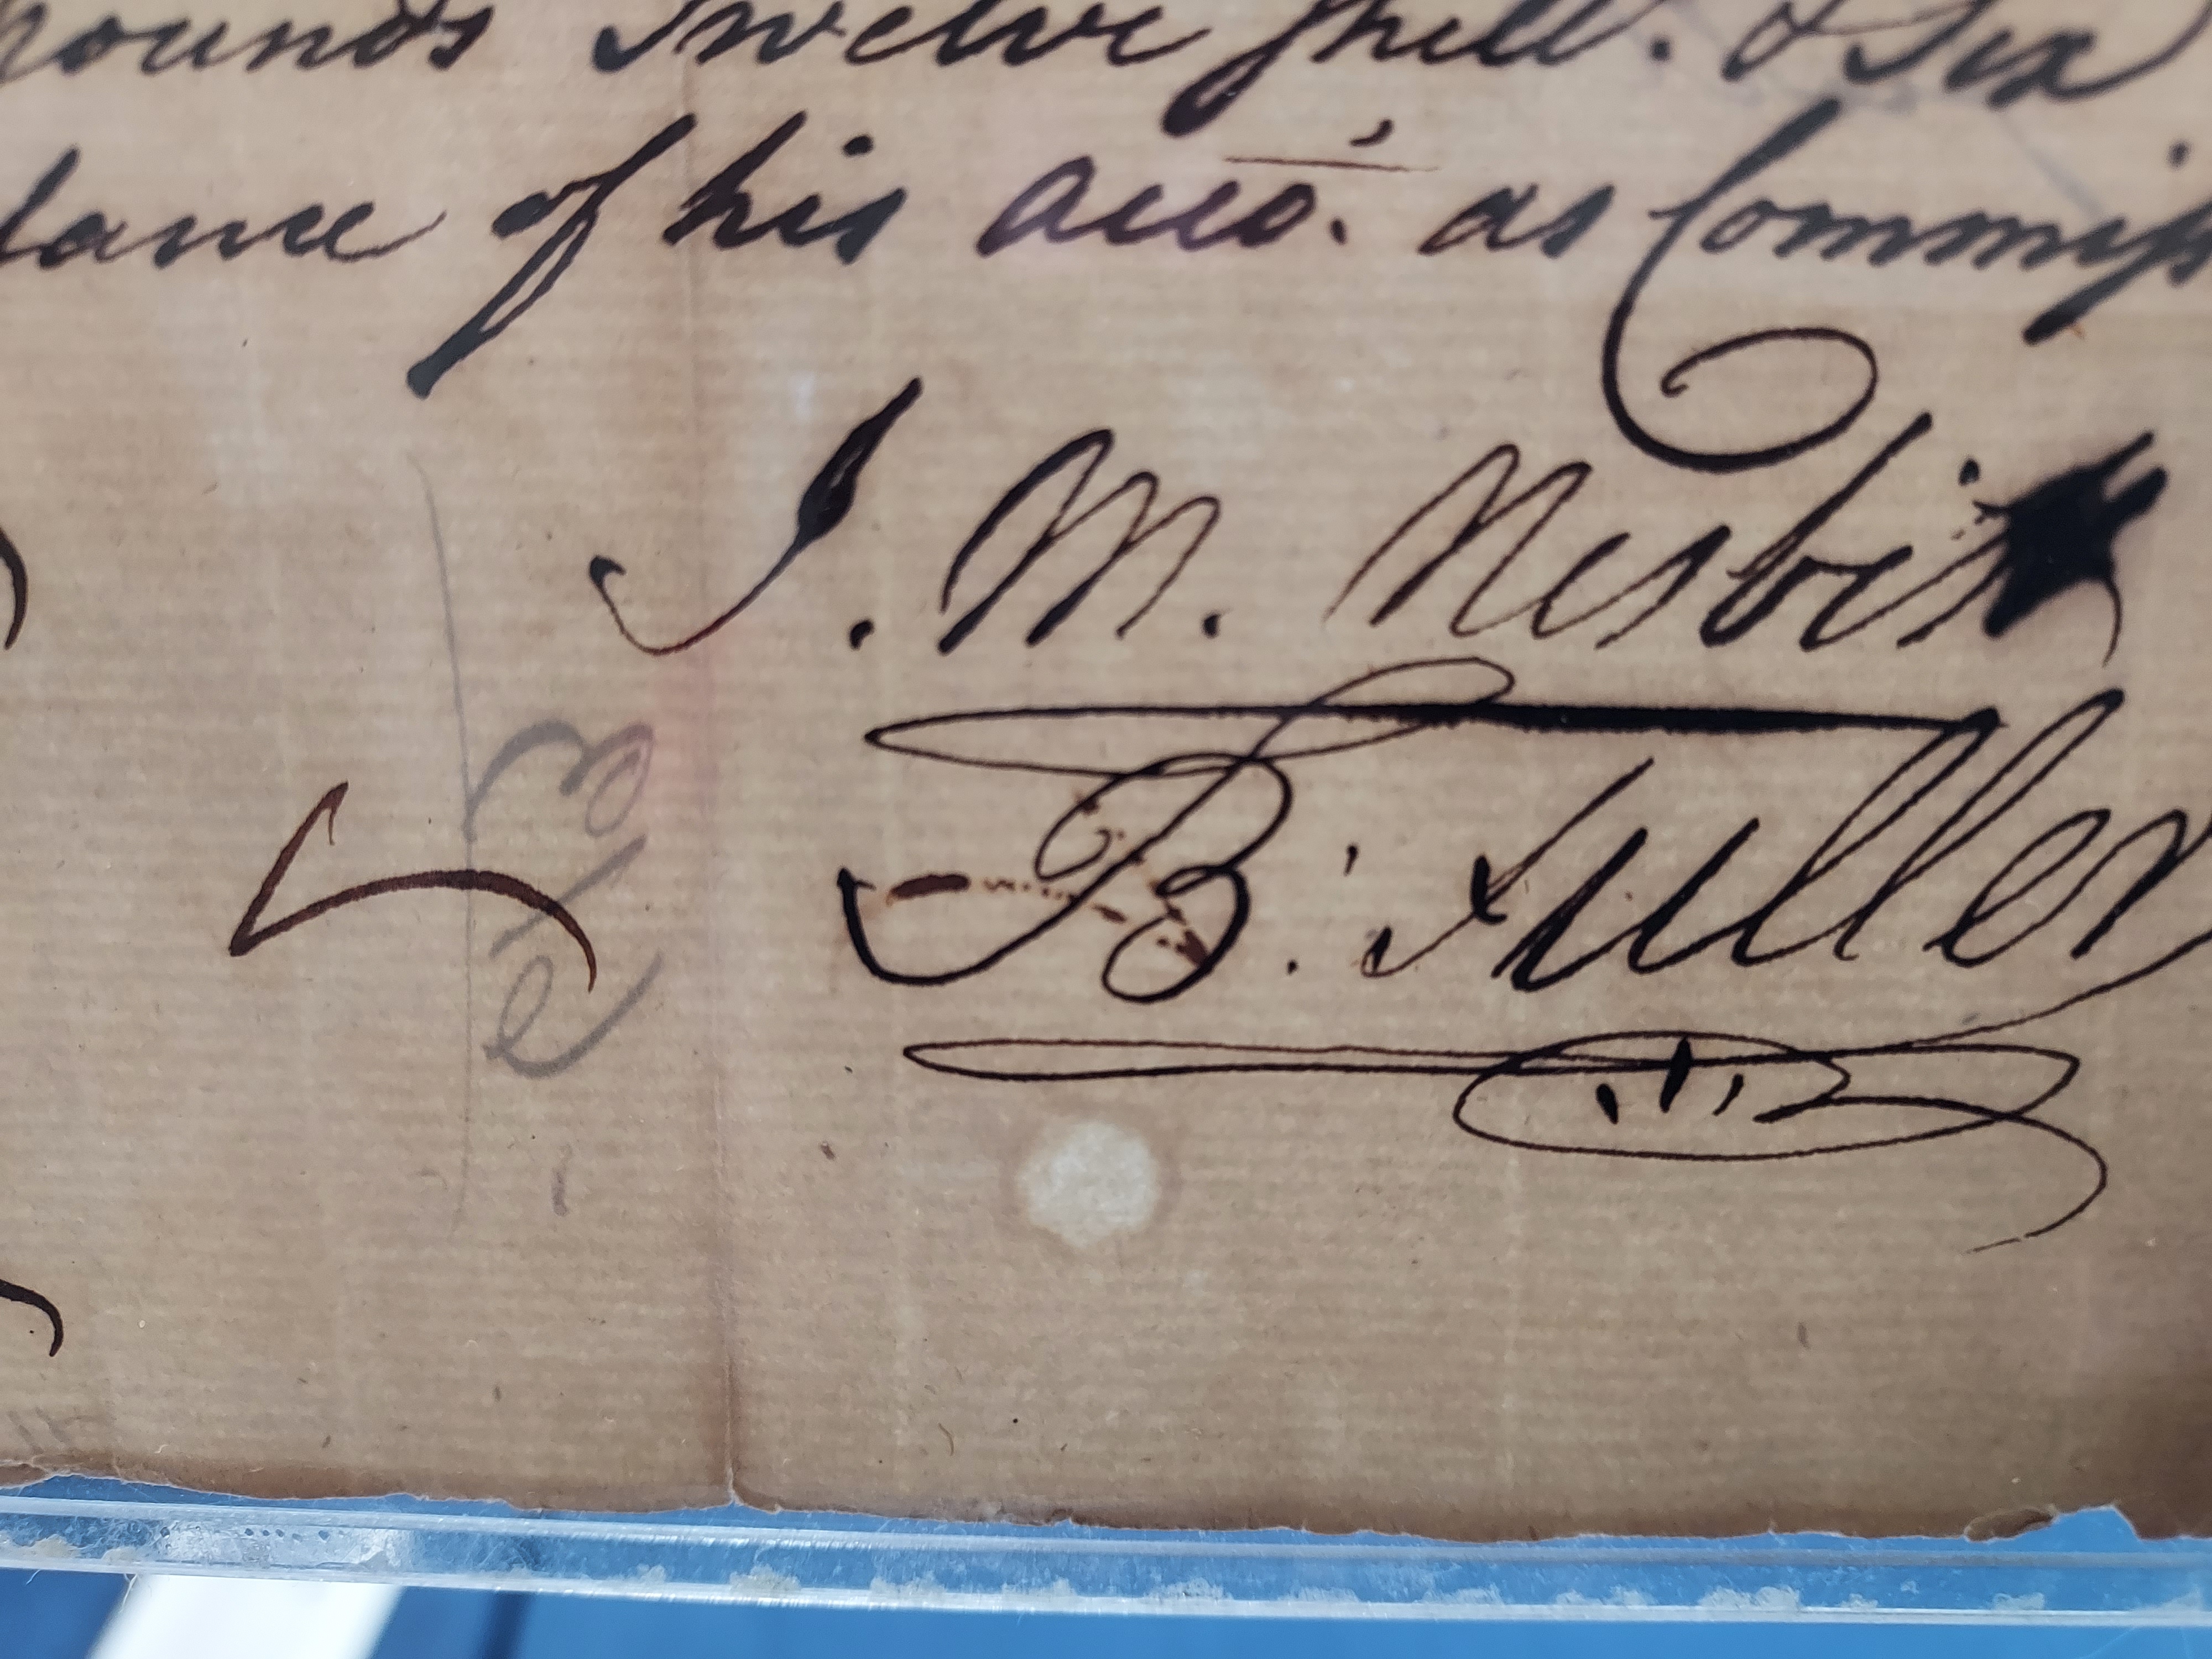 pounds Twelve shill. & Six
lance of his Acco. as Commiss
J. M. Nesbitt
B. Fuller